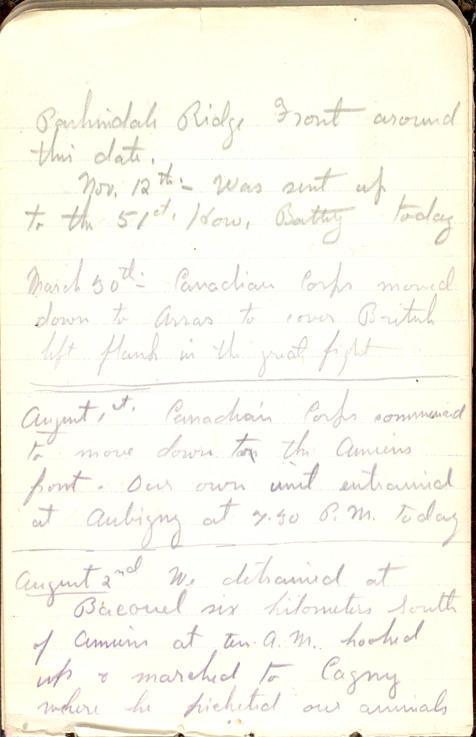 Pashindale Ridge Front around
this date.
Nov. 12th:- Was sent up
to the 51st. How. Battery today
March 30th:- Canadian Corps moved
down to Arras to cover British
left flank in the great fight
August, 1st. Canadian Corps commenced
to move down to the Amiens
front. Our own unit entrained
at Aubigny at 7.30 P.M. today
August 2nd We detrained at
Bacouel six kilometers South
of Amiens at ten A.M. hooked
up & marched to Cagny
where he picketed our animals